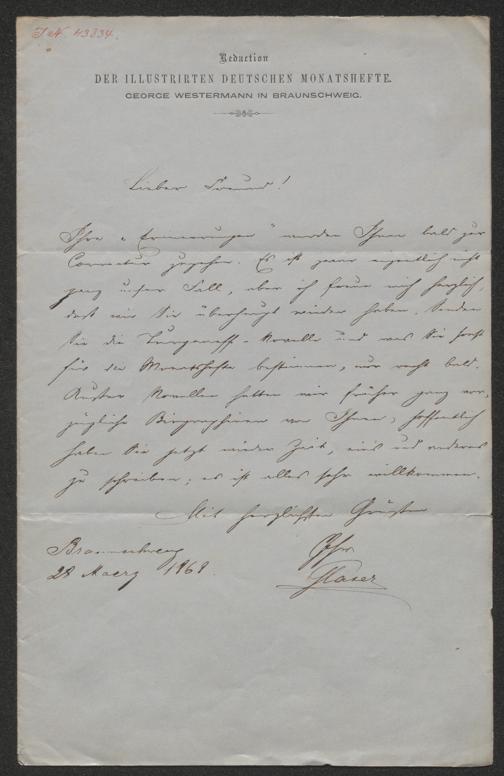 I.N. 43834.
Redaction
DER ILLUSTRIRTEN DEUTSCHEN MONATSHEFTE.
GEORGE WESTERMANN IN BRAUNSCHWEIG.
Lieber Freund!
Ihre „Erinnerungen" werden Ihnen bald zur
Correctur zugehen. Es ist zwar eigentlich nicht
ganz unser Fall, aber ich freue mich herzlich,
daß wir Sie überhaupt wieder haben. Senden
Sie die Turgeneff-Novelle und was Sie sonst
für die Monatshefte bestimmen, nur recht bald.
Außer Novellen hatten wir früher ganz vor-
zügliche Biographieen von Ihnen, hoffentlich
haben Sie jetzt wieder Zeit, eins und anderes
zu schreiben; es ist alles sehr willkommen.
Mit herzlichsten Grüßen
Braunschweig Ihr
28 Maerz 1869. Glaser